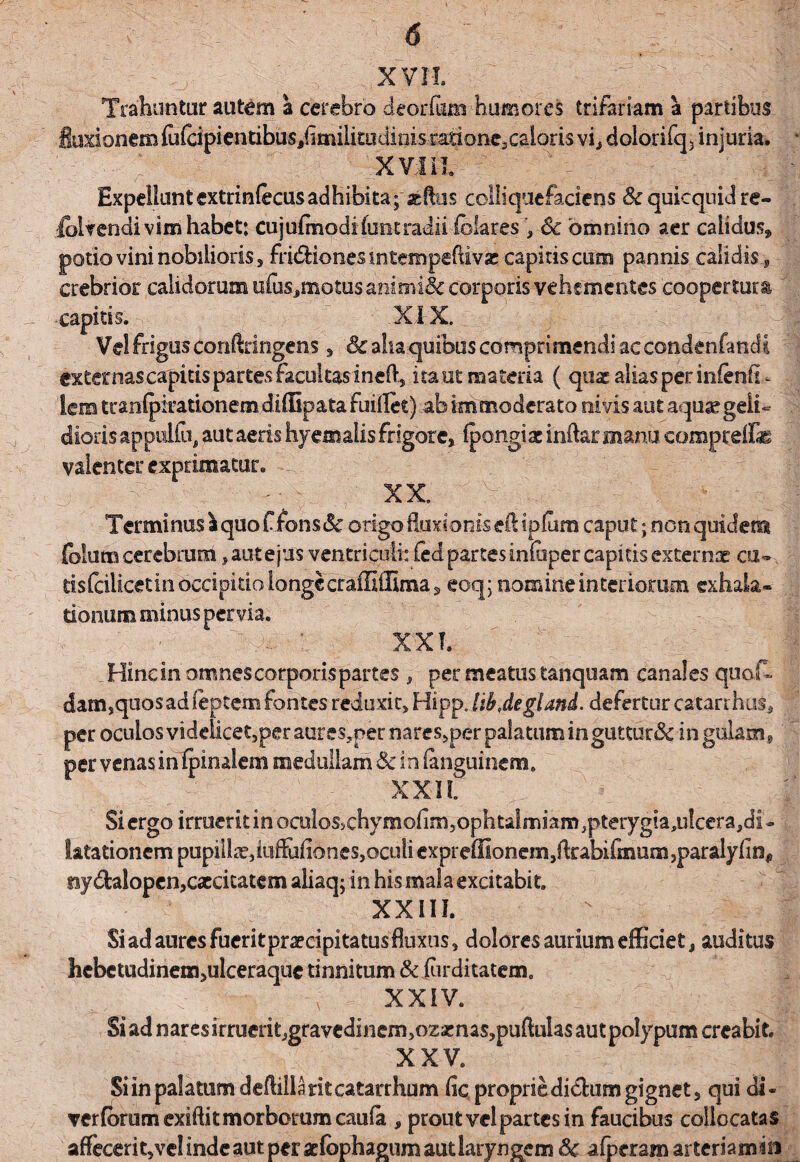 6
XVII.
Trahuntur autem à cerebro deorſum humores trifariam à partibus
fluxionem ſuſcipientibus,ſimilitudinis ratione,caloris vi, doloriſq; injuria.
XVIII.
Expellunt extrinſecus adhibita; æſtus colliquefaciens & quicquid re-
ſolvendi vim habet: cujuſmodi ſunt radii ſolares, & omnino aer calidus,
potio vini nobilioris, frictiones intempeſtivæ capitis cum pannis calidis,
crebrior calidorum uſus,motus animi & corporis vehementes coopertura
capitis. XIX.
Vel frigus conſtringens, & alia quibus comprimendi ac condenſandi
externas capitis partes facultas ineſt, ita ut materia ( quæ alias per inſenſi-
lem tranſpirationem diſſipata fuiſſet) ab immoderato nivis aut aquæ geli-
dioris appulſu, aut aeris hyemalis frigore, ſpongiæ inſtar manu compreſſæ
valenter exprimatur.
XX.
Terminus à quo ſ. fons & origo fluxionis eſt ipſum caput; non quidem
ſolum cerebrum, aut ejus ventriculi: ſed partes inſuper capitis externæ cu-
tis ſcilicet in occipitio longè craſſiſſima, eoq; nomine interiorum exhala-
tionum minus pervia.
XXI.
Hinc in omnes corporis partes, per meatus tanquam canales quoſ-
dam,quos ad ſeptem fontes reduxit, Hipp. lib. de gland. defertur catarrhus,
per oculos videlicet,per aures,per nares,per palatum in guttur & in gulam,
per venas in ſpinalem medullam & in ſanguinem.
XXII.
Si ergo irruerit in oculos,chymoſim,ophtalmiam,pterygia,ulcera,di-
latationem pupillæ,ſuffuſiones,oculi expreſſionem,ſtrabiſmum,paralyſin,
nyctalopen,cæcitatem aliaq; in his mala excitabit.
XXIII.
Si ad aures fuerit præcipitatus fluxus, dolores aurium efficiet, auditus
hebetudinem,ulceraque tinnitum & ſurditatem.
XXIV.
Si ad nares irruerit,gravedinem,ozænas,puſtulas aut polypum creabit.
XXV.
Si in palatum deſtillârit catarrhum ſic propriè dictum gignet, qui di-
verſorum exiſtit morborum cauſa, prout vel partes in faucibus collocatas
affecerit,vel inde aut per æſophagum aut laryngem & aſperam arteriam in